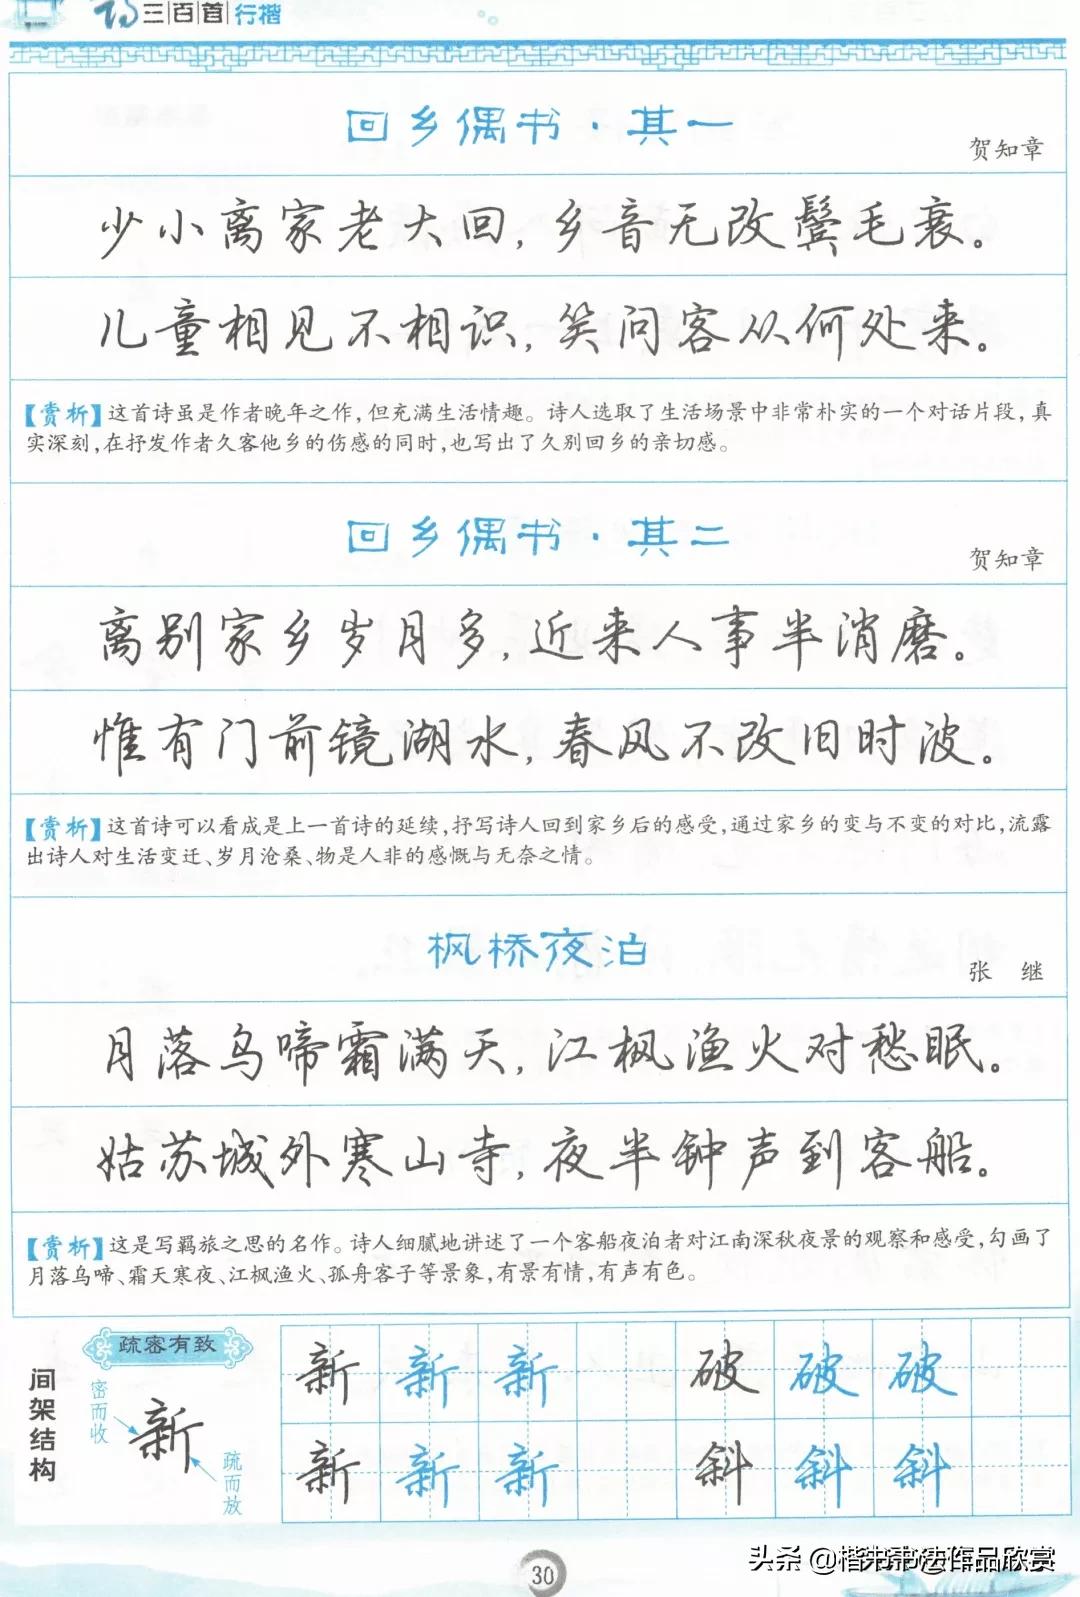 诗三百首行楷
回乡偶书·其一
贺知章
少小离家老大回,乡音无改鬓毛衰。
儿童相见不相识,笑问客从何处来。
【赏析】这首诗虽是作者晚年之作,但充满生活情趣。诗人选取了生活场景中非常朴实的一个对话片段,真
实深刻,在抒发作者久客他乡的伤感的同时,也写出了久别回乡的亲切感。
回乡偶书·其二
贺知章
离别家乡岁月多,近来人事半消磨。
惟有门前镜湖水,春风不改旧时波。
【赏析】这首诗可以看成是上一首诗的延续,抒写诗人回到家乡后的感受,通过家乡的变与不变的对比,流露
出诗人对生活变迁、岁月沧桑、物是人非的感慨与无奈之情。
枫桥夜泊
张 继
月落乌啼霜满天,江枫渔火对愁眠。
姑苏城外寒山寺,夜半钟声到客船。
【赏析】这是写羁旅之思的名作。诗人细腻地讲述了一个客船夜泊者对江南深秋夜景的观察和感受,勾画了
月落乌啼、霜天寒夜、江枫渔火、孤舟客子等景象,有景有情,有声有色。
间架结构
疏密有致
密而收
新
疏而放
新 新 新 破 破 破
新 新 新 斜 斜 斜
30
头条 @楷书书法作品欣赏